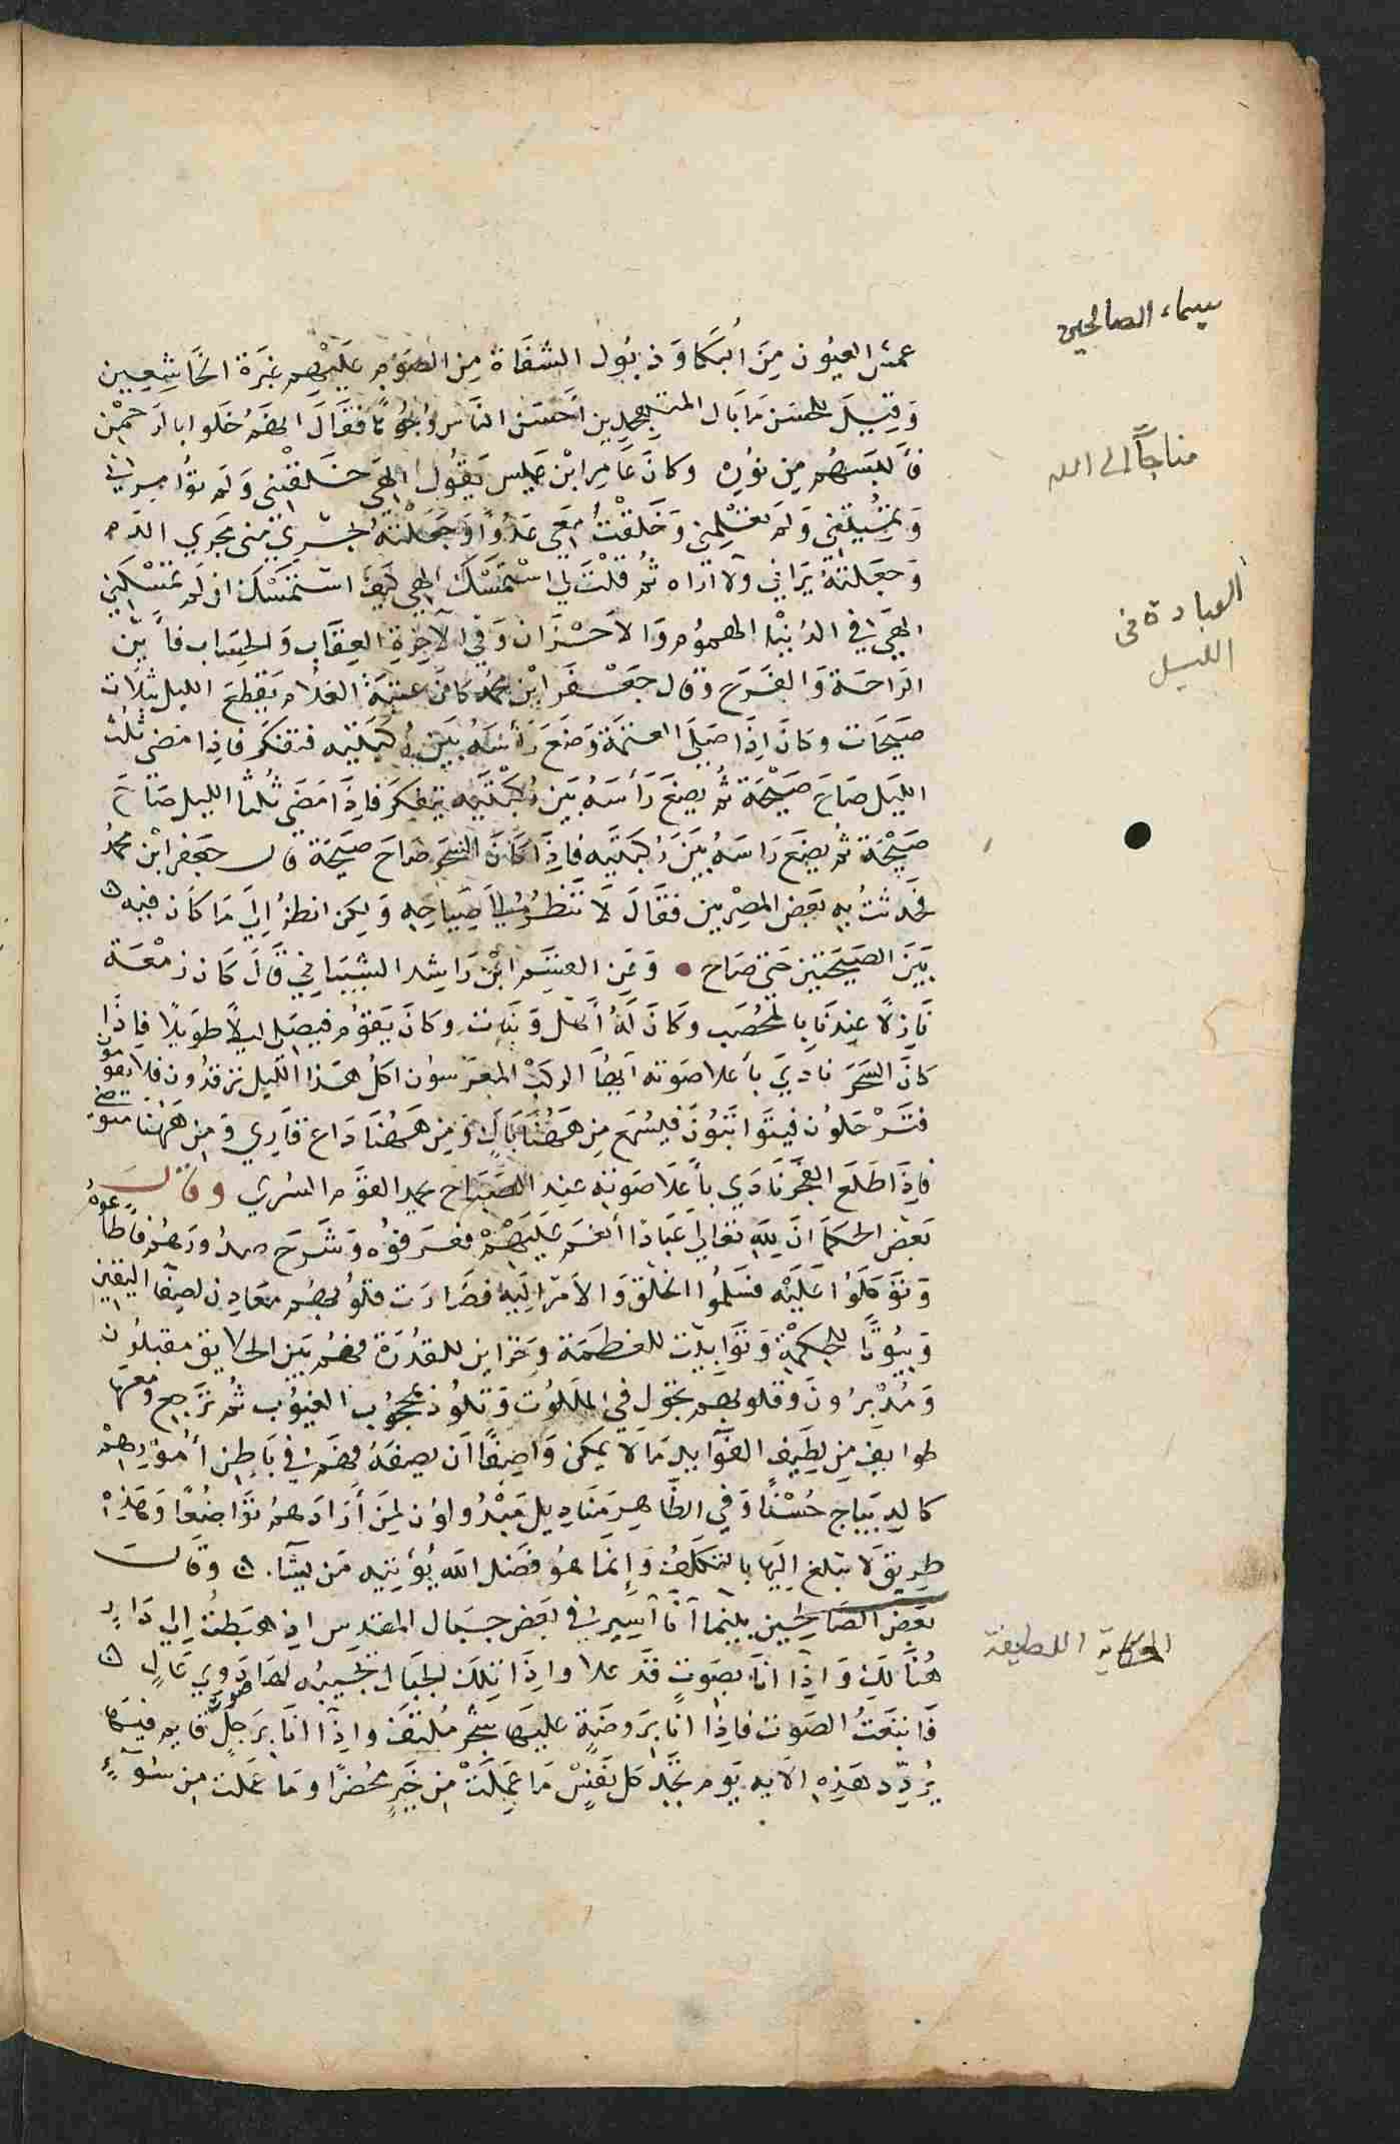 سيماء الصالحين
عمش العيون من البكا وذبول الشفاة من الصوم عليهم غبرة الخاشعين
وقيل للحسن ما بال المتهجدين احسن الناس وجوها فقال انهم خلوا بالرحمن
مناجاة الى الله
فألبسهم من نوره وكان عامر ابن قيس يقول الهي خلقتني ولم تؤامرني
وتميتني ولم تعلمني وخلقت معي عدوا وجعلته يجري مني مجري الدم
وجعلته يراني ولا اراه ثم قلت لي استمسك الهي كيف استمسك ان لم تمسكني
العبادة فى
الليل
الهي في الدنيا الهموم والاحزان وفي الاخرة العقاب والحساب فأين
الراحة والفرح وقال جعفر ابن محمد كان عتبة الغلام يقطع الليل بثلاث
صيحات وكان اذا صلى العتمة وضع رأسه بين ركبتيه فتفكر فاذا مضى ثلث
الليل صاح صيحة ثم يضع رأسه بين ركبتيه يتفكر فاذا مضى ثلثا الليل صاح
صيحة ثم يضع راسه بين ركبتيه فاذا كان السحر صاح صيحة قال جعفر ابن محمد
فحدثت به بعض المصريين فقال لا تنظر الى صياحه ولكن انظر الى ما كان فيه
بين الصيحتين حتى صاح • وعن القسم ابن راشد الشيباني قال كان زمعة
نازلا عندنا بالمحصب وكان له أهل وبنات وكان يقوم فيصلى ليلا طويلا فاذا
كان السحر نادي بأعلا صوته ايها الركب المعرسون اكل هذا الليل ترقدون فلا تقومون
فترحلون فيتواثبون فيسمع من ههنا باك ومن ههنا داع قاري ومن ههنا متوضي
فاذا طلع الفجر نادي بأعلا صوته عند الصباح يحمد القوم السري وقال
بعض الحكما ان لله تعالى عبادا أنعم عليهم فعرفوه وشرح صدورهم فأطاعوه
وتوكلوا عليه فسلموا الخلق والامر اليه فصارت قلوبهم معادن لصفا اليقين
وبيوتا للحكمة وتوابيت للعظمة وخزاين للقدرة فهم بين الخلايق مقبلون
ومدبرون وقلوبهم تجول في الملكوت وتلوذ بمحجوب الغيوب ثم ترجع ومعها
طوايف من لطيف الفوايد ما لا يمكن واصفا ان يصفه فهم في باطن أمورهم
كالديباج حسنا وفي الظاهر مناديل مبذولون لمن أرادهم تواضعا وهذه
طريق لا يبلغ اليها بالتكلف وانما هو فضل الله يؤتيه من يشآء ۞ وقال
الحكاية اللطيفة
بعض الصالحين بينما أنا اسير في بعض جبال المقدس اذ هبطت الى واد
هنالك واذا انا بصوت قد علا واذا تلك الجبال تجيبه لها دوي عال
فاتبعت الصوت فاذا انا بروضة عليها شجر ملتف واذا انا برجل قايم فيها
يردد هذه الايه يوم تجد كل نفس ما عملت من خير محضرا وما عملت من سوء